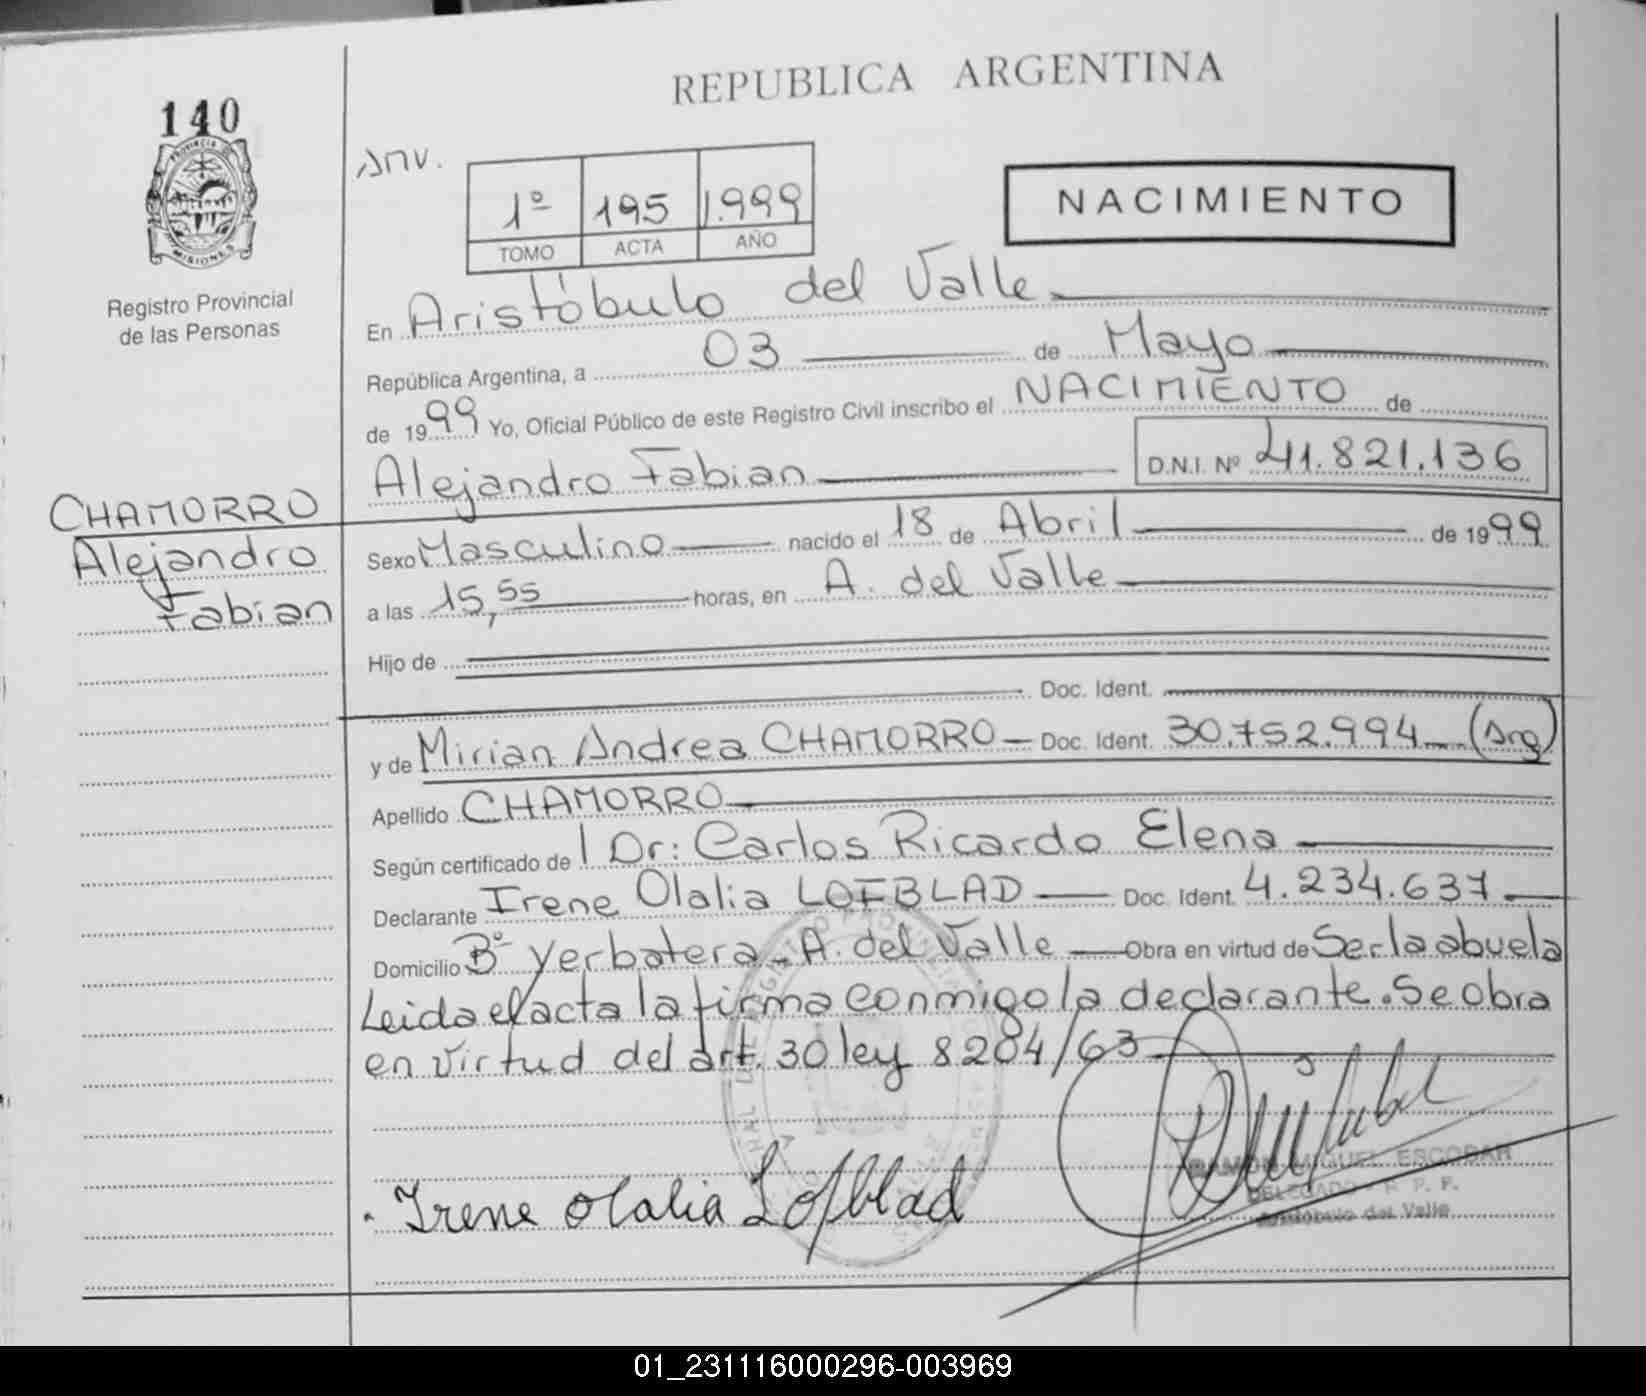 REPUBLICA ARGENTINA
140
PROVINCIA DE
MISIONES
Registro Provincial
de las Personas
Anv.
1º 195 1.999
TOMO ACTA AÑO
NACIMIENTO
En Aristóbulo del Valle
República Argentina, a 03 de Mayo
de 1999 Yo, Oficial Público de este Registro Civil inscribo el NACIMIENTO de
Alejandro Fabian D.N.I. Nº 41.821.136
CHAMORRO
Alejandro
Fabian
Sexo Masculino nacido el 18 de Abril de 1999
a las 15,55 horas, en A. del Valle
Hijo de
Doc. Ident.
y de Mirian Andrea CHAMORRO Doc. Ident. 30.752.994 (Arg)
Apellido CHAMORRO
Según certificado de l Dr: Carlos Ricardo Elena
Declarante Irene Olalia LOFBLAD Doc. Ident. 4.234.637
Domicilio Bº Yerbatera - A. del Valle Obra en virtud de Ser la abuela
Leida el acta la firma conmigo la declarante. Se obra
en virtud del art. 30 ley 8204/63
Irene Olalia Lofblad
RAMON MIGUEL ESCOBAR
DELEGADO R. P. P.
Aristóbulo del Valle
01_231116000296-003969